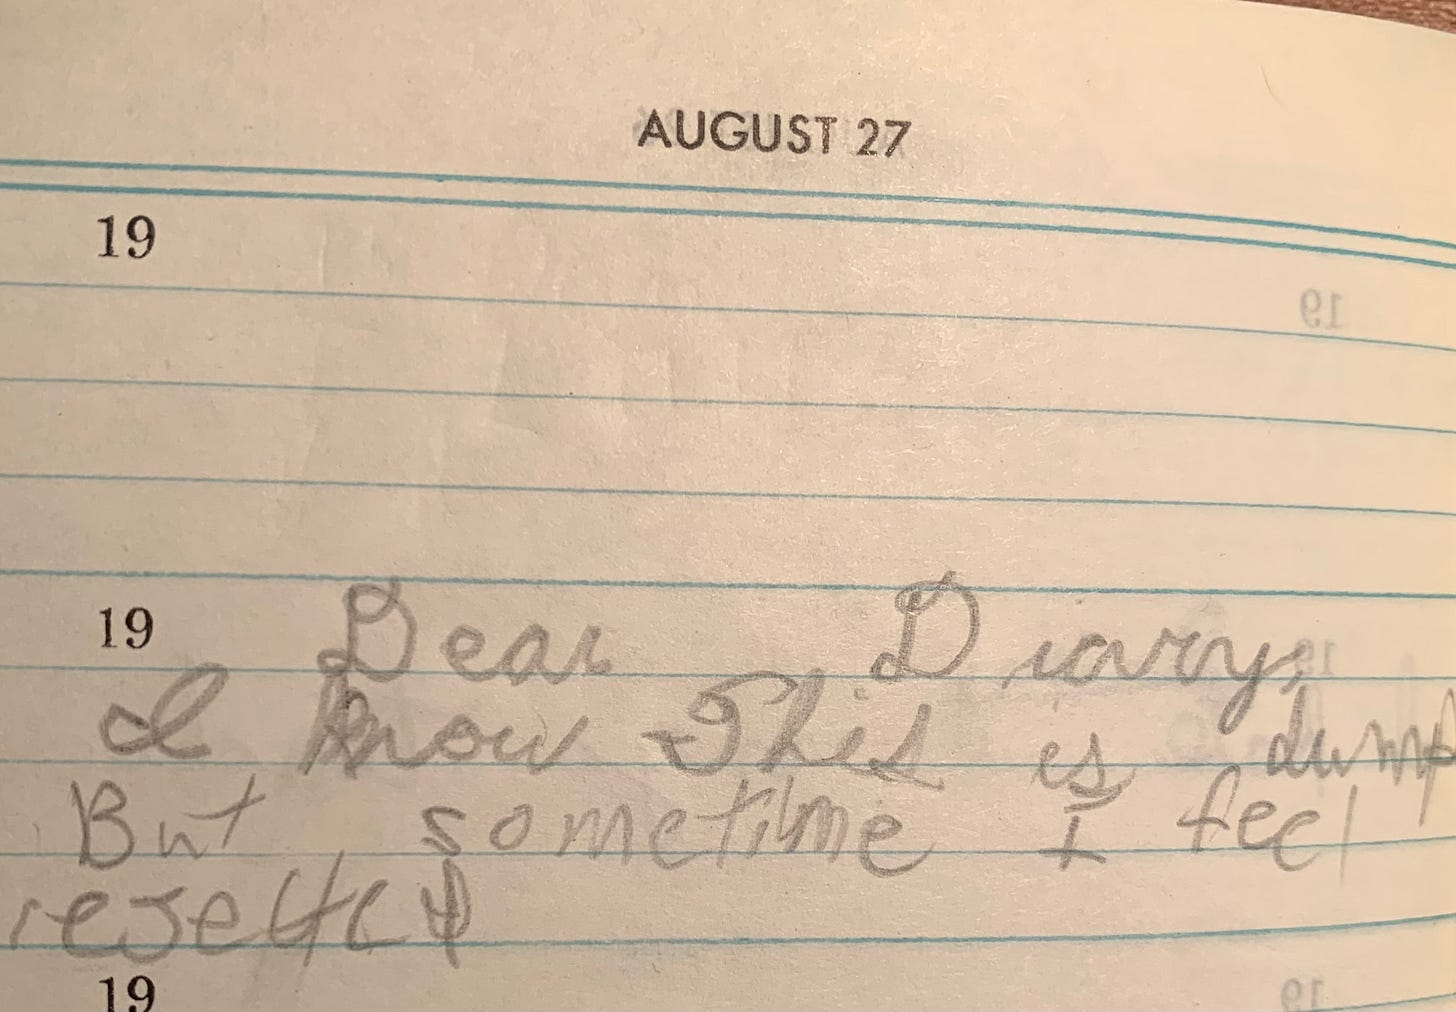 AUGUST 27
19
19 Dear Diary,
I know This is dump
But sometime I feel
19